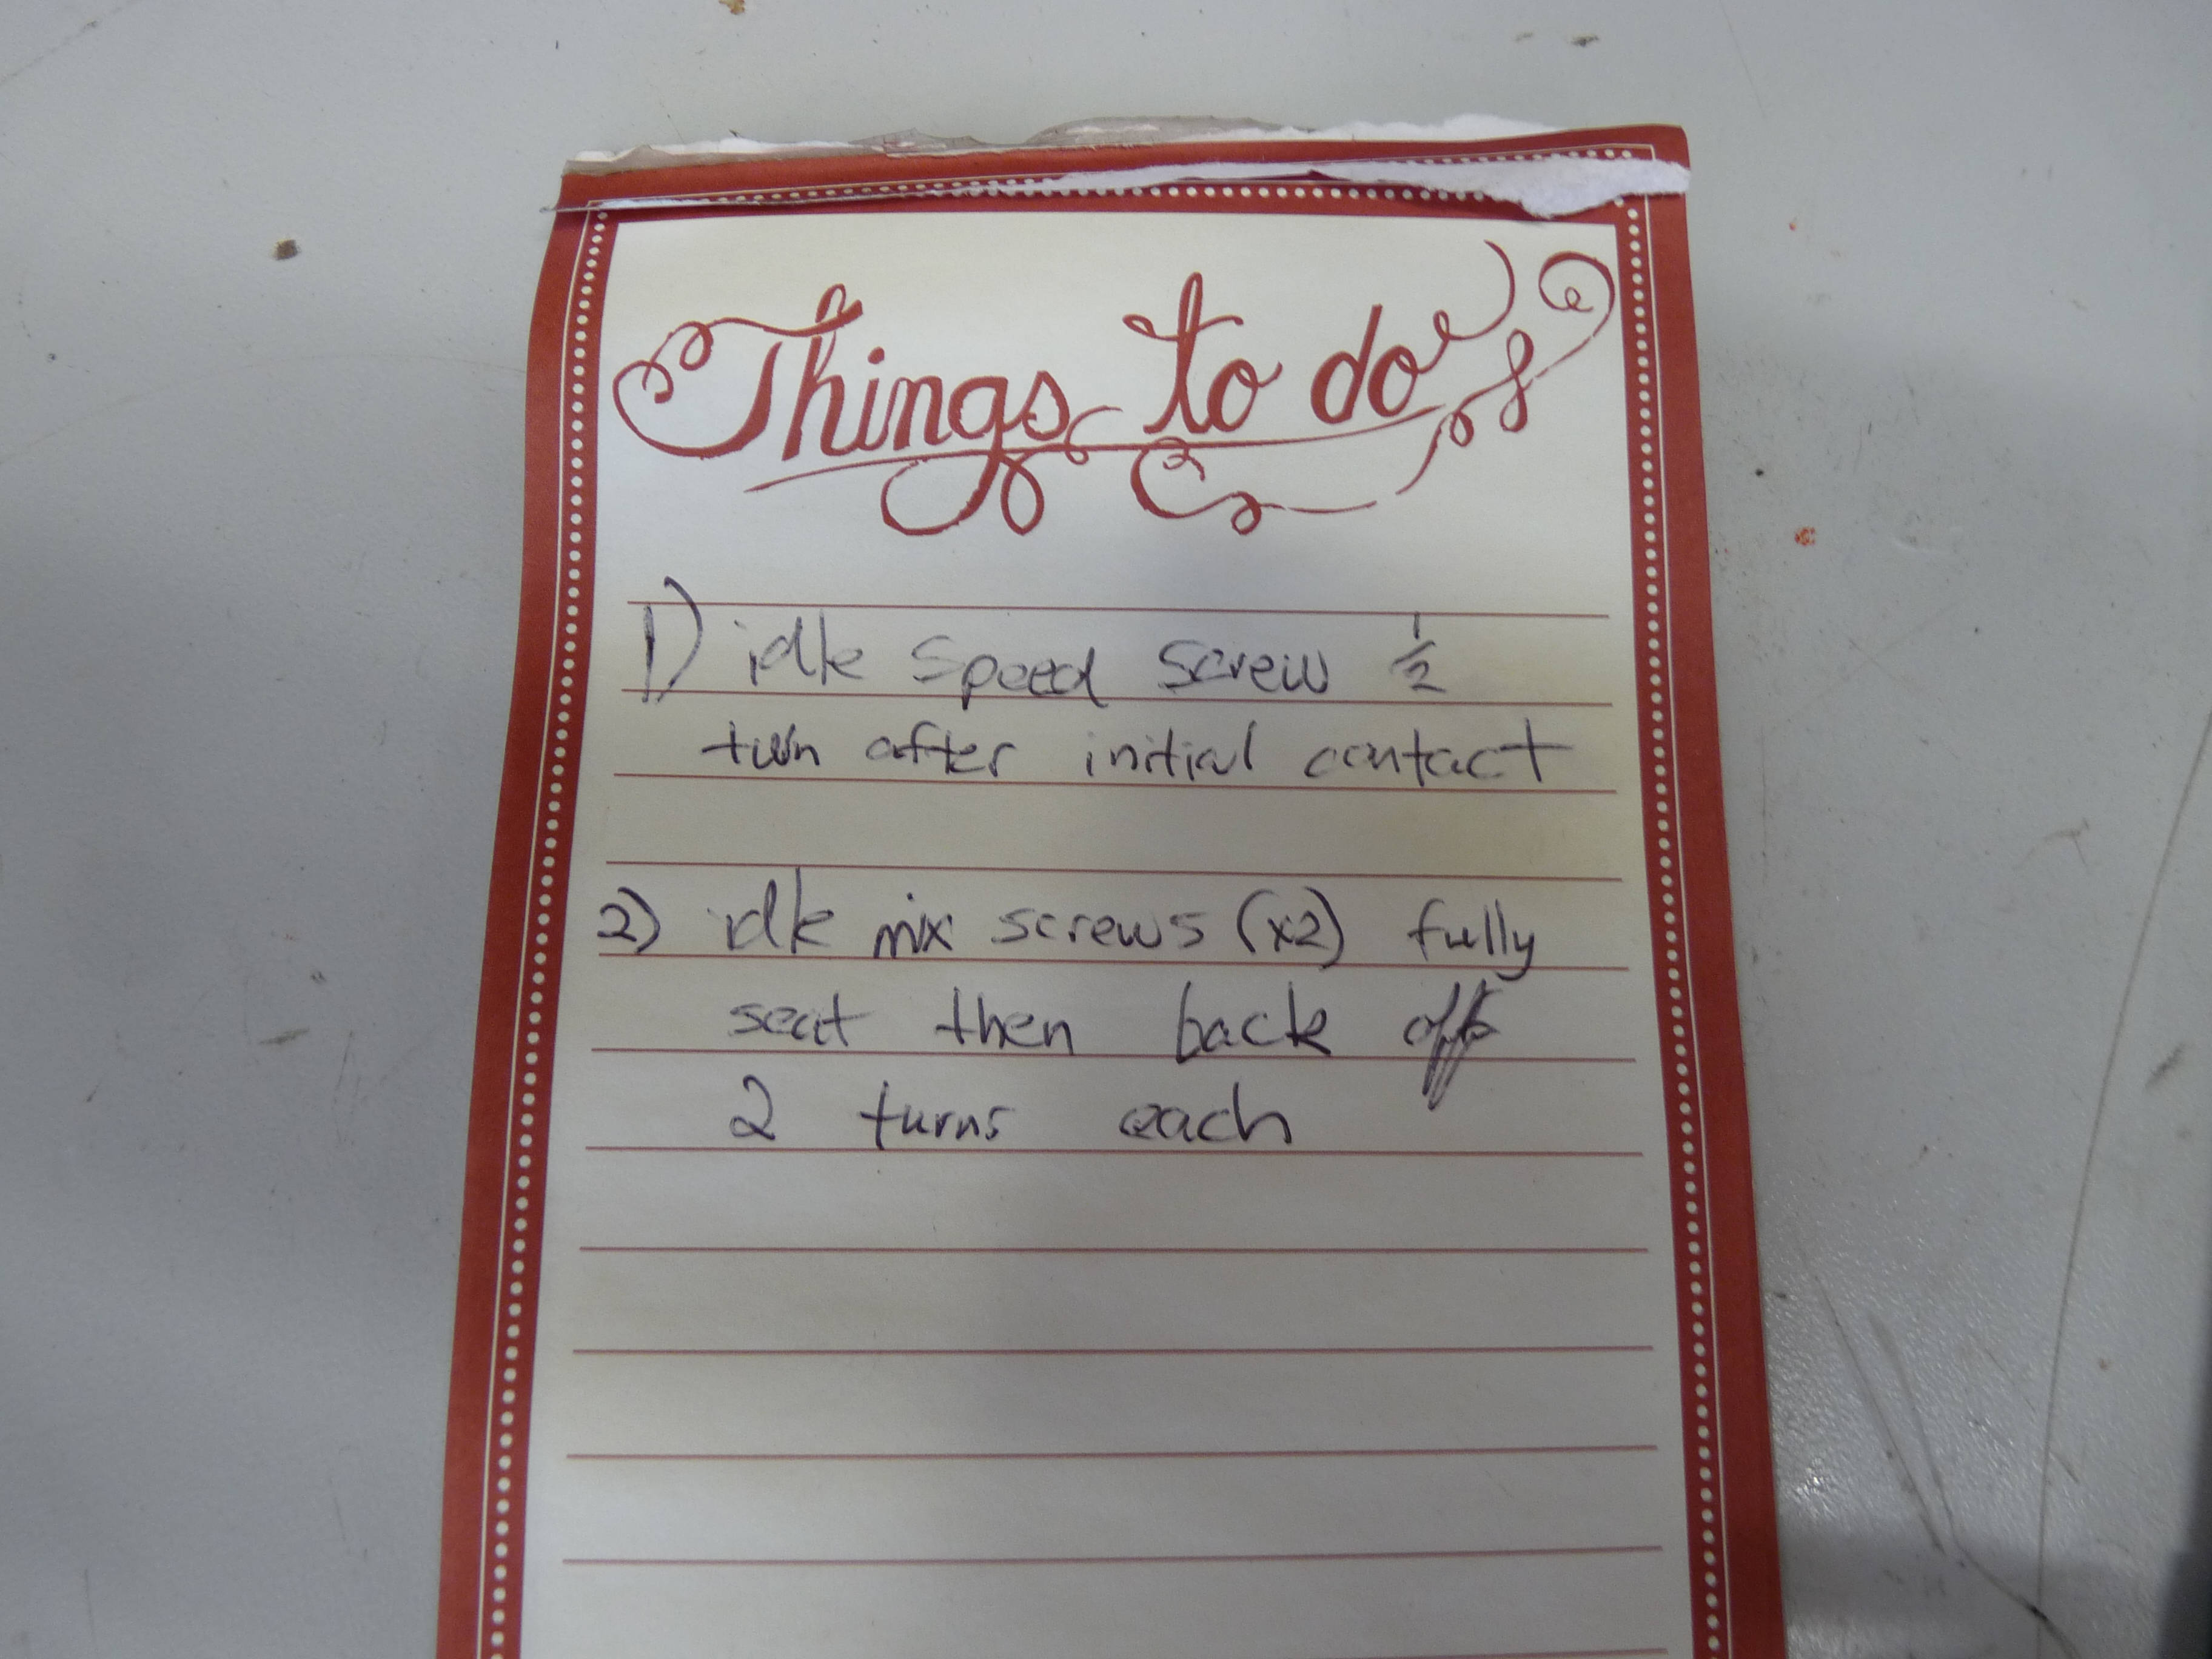 Things to do
1) idle speed screw 1/2
turn after initial contact
2) idle mix screws (x2) fully
seat then back off
2 turns each